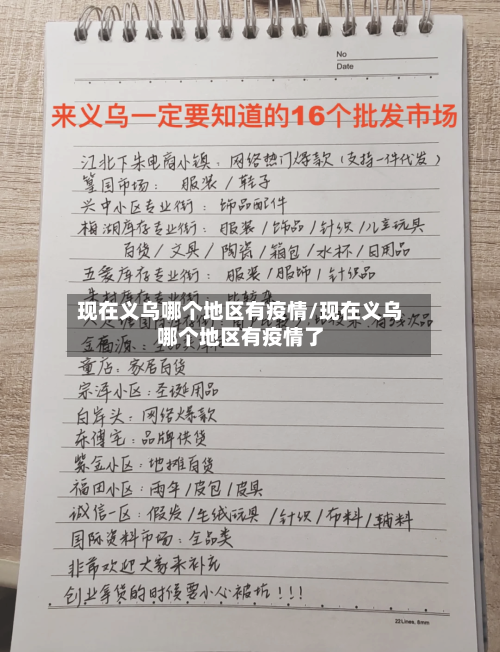 No
Date
来义乌一定要知道的16个批发市场
江北下朱电商小镇：网络热门爆款（支持一件代发）
篁园市场：服装/鞋子
兴中小区专业街：饰品配件
梅湖库存专业街：服装/饰品/针织/儿童玩具
百货/文具/陶瓷/箱包/水杯/日用品
五爱库存专业街：服装/服饰/针织品
现在义乌哪个地区有疫情/现在义乌
哪个地区有疫情了
金福源：
童店：家居百货
宗泽小区：圣诞用品
白岸头：网络爆款
东傅宅：品牌供货
紫金小区：地摊百货
福田小区：雨伞/皮包/皮具
诚信一区：假发/毛绒玩具/针织/布料/辅料
国际资料市场：全品类
非常欢迎大家来补充
创业拿货的时候要小心被坑！！！
22Lines, 8mm